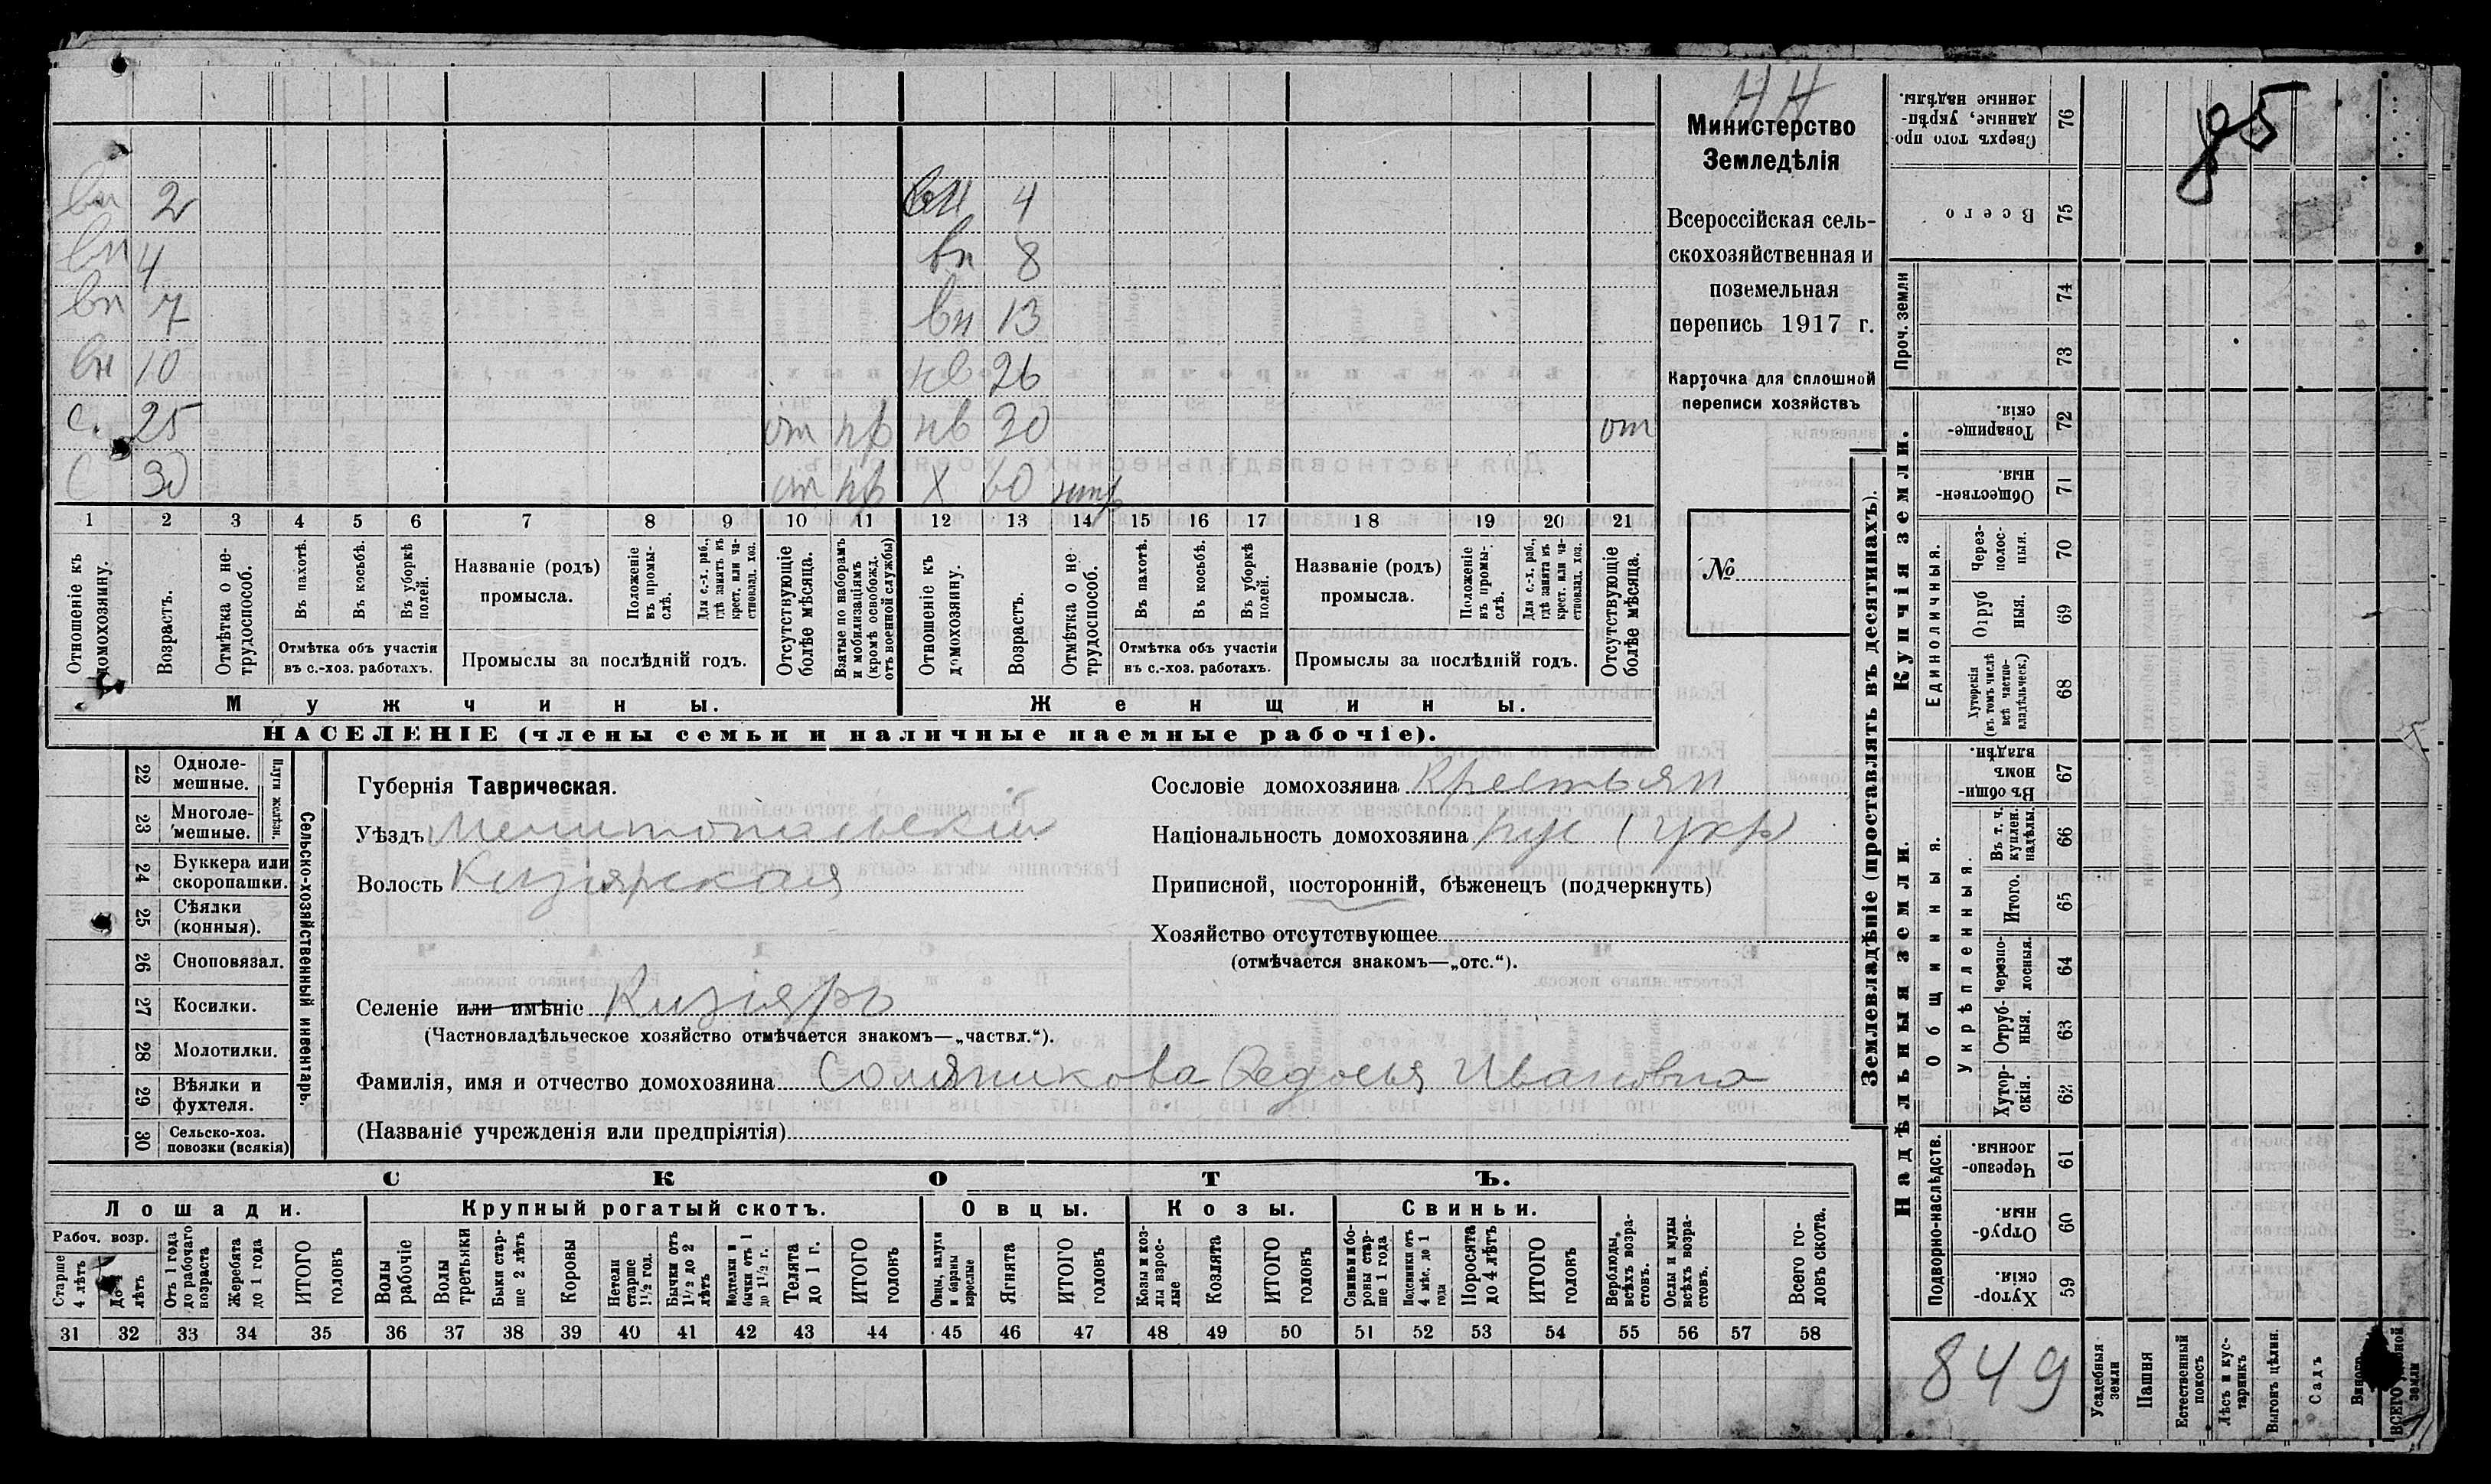 НН
Министерство
Земледѣлія
Всероссійская сель-
скохозяйственная и
поземельная
перепись 1917 г.
Карточка для сплошной
переписи хозяйствъ
№
85
вн 2 вн 4
вн 4 вн 8
вн 7 вн 13
вн 10 нв 26
с. 25 от нв 30 от
с 30 от х 60
1 2 3 4 5 6 7 8 9 10 11 12 13 14 15 16 17 18 19 20 21
Отношеніе къ домохозяину.
Возрастъ.
Отмѣтка о не-трудоспособ.
Въ пахотѣ.
Въ косьбѣ.
Въ уборкѣ полей.
Отмѣтка объ участіи
въ с.-хоз. работахъ.
Названіе (родъ)
промысла.
Положеніе въ промы-слѣ.
Для с.-х. раб., гдѣ занятъ въ крест. или ча-стновлад. хоз.
Промыслы за послѣдній годъ.
Отсутствующіе болѣе мѣсяца.
Взятые по наборамъ и мобилизаціямъ (кромѣ освобожд. отъ военной службы)
Отношеніе къ домохозяину.
Возрастъ.
Отмѣтка о не трудоспособ.
Въ пахотѣ.
Въ косьбѣ.
Въ уборкѣ полей.
Отмѣтка объ участіи
въ с.-хоз. работахъ.
Названіе (родъ)
промысла.
Положеніе въ промы-слѣ.
Для с.-х. раб., гдѣ занята въ крест. или ча-стновлад. хоз.
Промыслы за послѣдній годъ.
Отсутствующіе болѣе мѣсяца.
Мужчины.
Женщины.
НАСЕЛЕНІЕ (члены семьи и наличные наемные рабочіе).
22 Однолемешные.
23 Многолемешные.
Плуги желѣзн.
24 Буккера или скоропашки.
25 Сѣялки (конныя).
26 Сноповязал.
27 Косилки.
28 Молотилки.
29 Вѣялки и фухтеля.
30 Сельско-хоз. повозки (всякія)
Сельско-хозяйственный инвентарь.
Губернія Таврическая.
Уѣздъ Мелитопольскій
Волость Кизіярская
Селеніе или имѣніе Кизіяръ
(Частновладѣльческое хозяйство отмѣчается знакомъ—„частвл.“).
Фамилія, имя и отчество домохозяина Соляникова Федосья Ивановна
(Названіе учрежденія или предпріятія)
Сословіе домохозяина Крестьян
Національность домохозяина рус (укр)
Приписной, посторонній, бѣженецъ (подчеркнуть)
Хозяйство отсутствующее
(отмѣчается знакомъ—„отс.“).
СКОТЪ.
Лошади. Крупный рогатый скотъ. Овцы. Козы. Свиньи.
Рабоч. возр.
Старше 4 лѣтъ
До лѣтъ
Отъ 1 года до рабочаго возраста
Жеребята до 1 года
ИТОГО головъ
Волы рабочіе
Волы третьяки
Быки стар-ше 2 лѣтъ
Коровы
Нетели старше 1½ год.
Бычки отъ 1½ до 2 лѣтъ
Модтелки и бычки отъ 1 до 1½ г.
Телята до 1 г.
ИТОГО головъ
Овцы, валухи и бараны взрослые
Ягнята
ИТОГО головъ
Козы и коз-лы взрос-лые
Козлята
ИТОГО головъ
Свиньи бо-ровы стар-ше 1 года
Подсвинки отъ 4 мѣс. до 1 года
Поросята до 4 лѣтъ
ИТОГО головъ
Верблюды всѣхъ возра-стовъ.
Ослы и мулы всѣхъ возра-стовъ.
Всего го-ловъ скота.
31 32 33 34 35 36 37 38 39 40 41 42 43 44 45 46 47 48 49 50 51 52 53 54 55 56 57 58
Землевладѣніе (проставлять въ десятинахъ).
Купчія земли.
Надѣльныя земли.
Сверхъ того про-данные, укрѣп-ленные надѣлы. 76
Всего 75
Проч. земли 74 73
Товарище-скія. 72
Обществен-ныя 71
Единоличныя.
Через-полос-ныя. 70
Отруб ныя. 69
Хуторскія (въ томъ числѣ всѣ частно-владѣльческ.) 68
Въ общи-номъ владѣн. 67
Общинныя.
Укрѣпленныя.
Въ т. ч. куплен. надѣлы. 66
Итого. 65
Черезпо-лосныя. 64
Отруб-ныя. 63
Хутор-скія. 62
Подворно-наслѣдств.
Черезпо-лосныя 61
Отруб-ныя. 60
Хутор-скія. 59
849
Усадебныя земли
Пашня
Естественный покосъ
Лѣсъ и кус-тарникъ
Выгонъ цѣлин.
Садъ